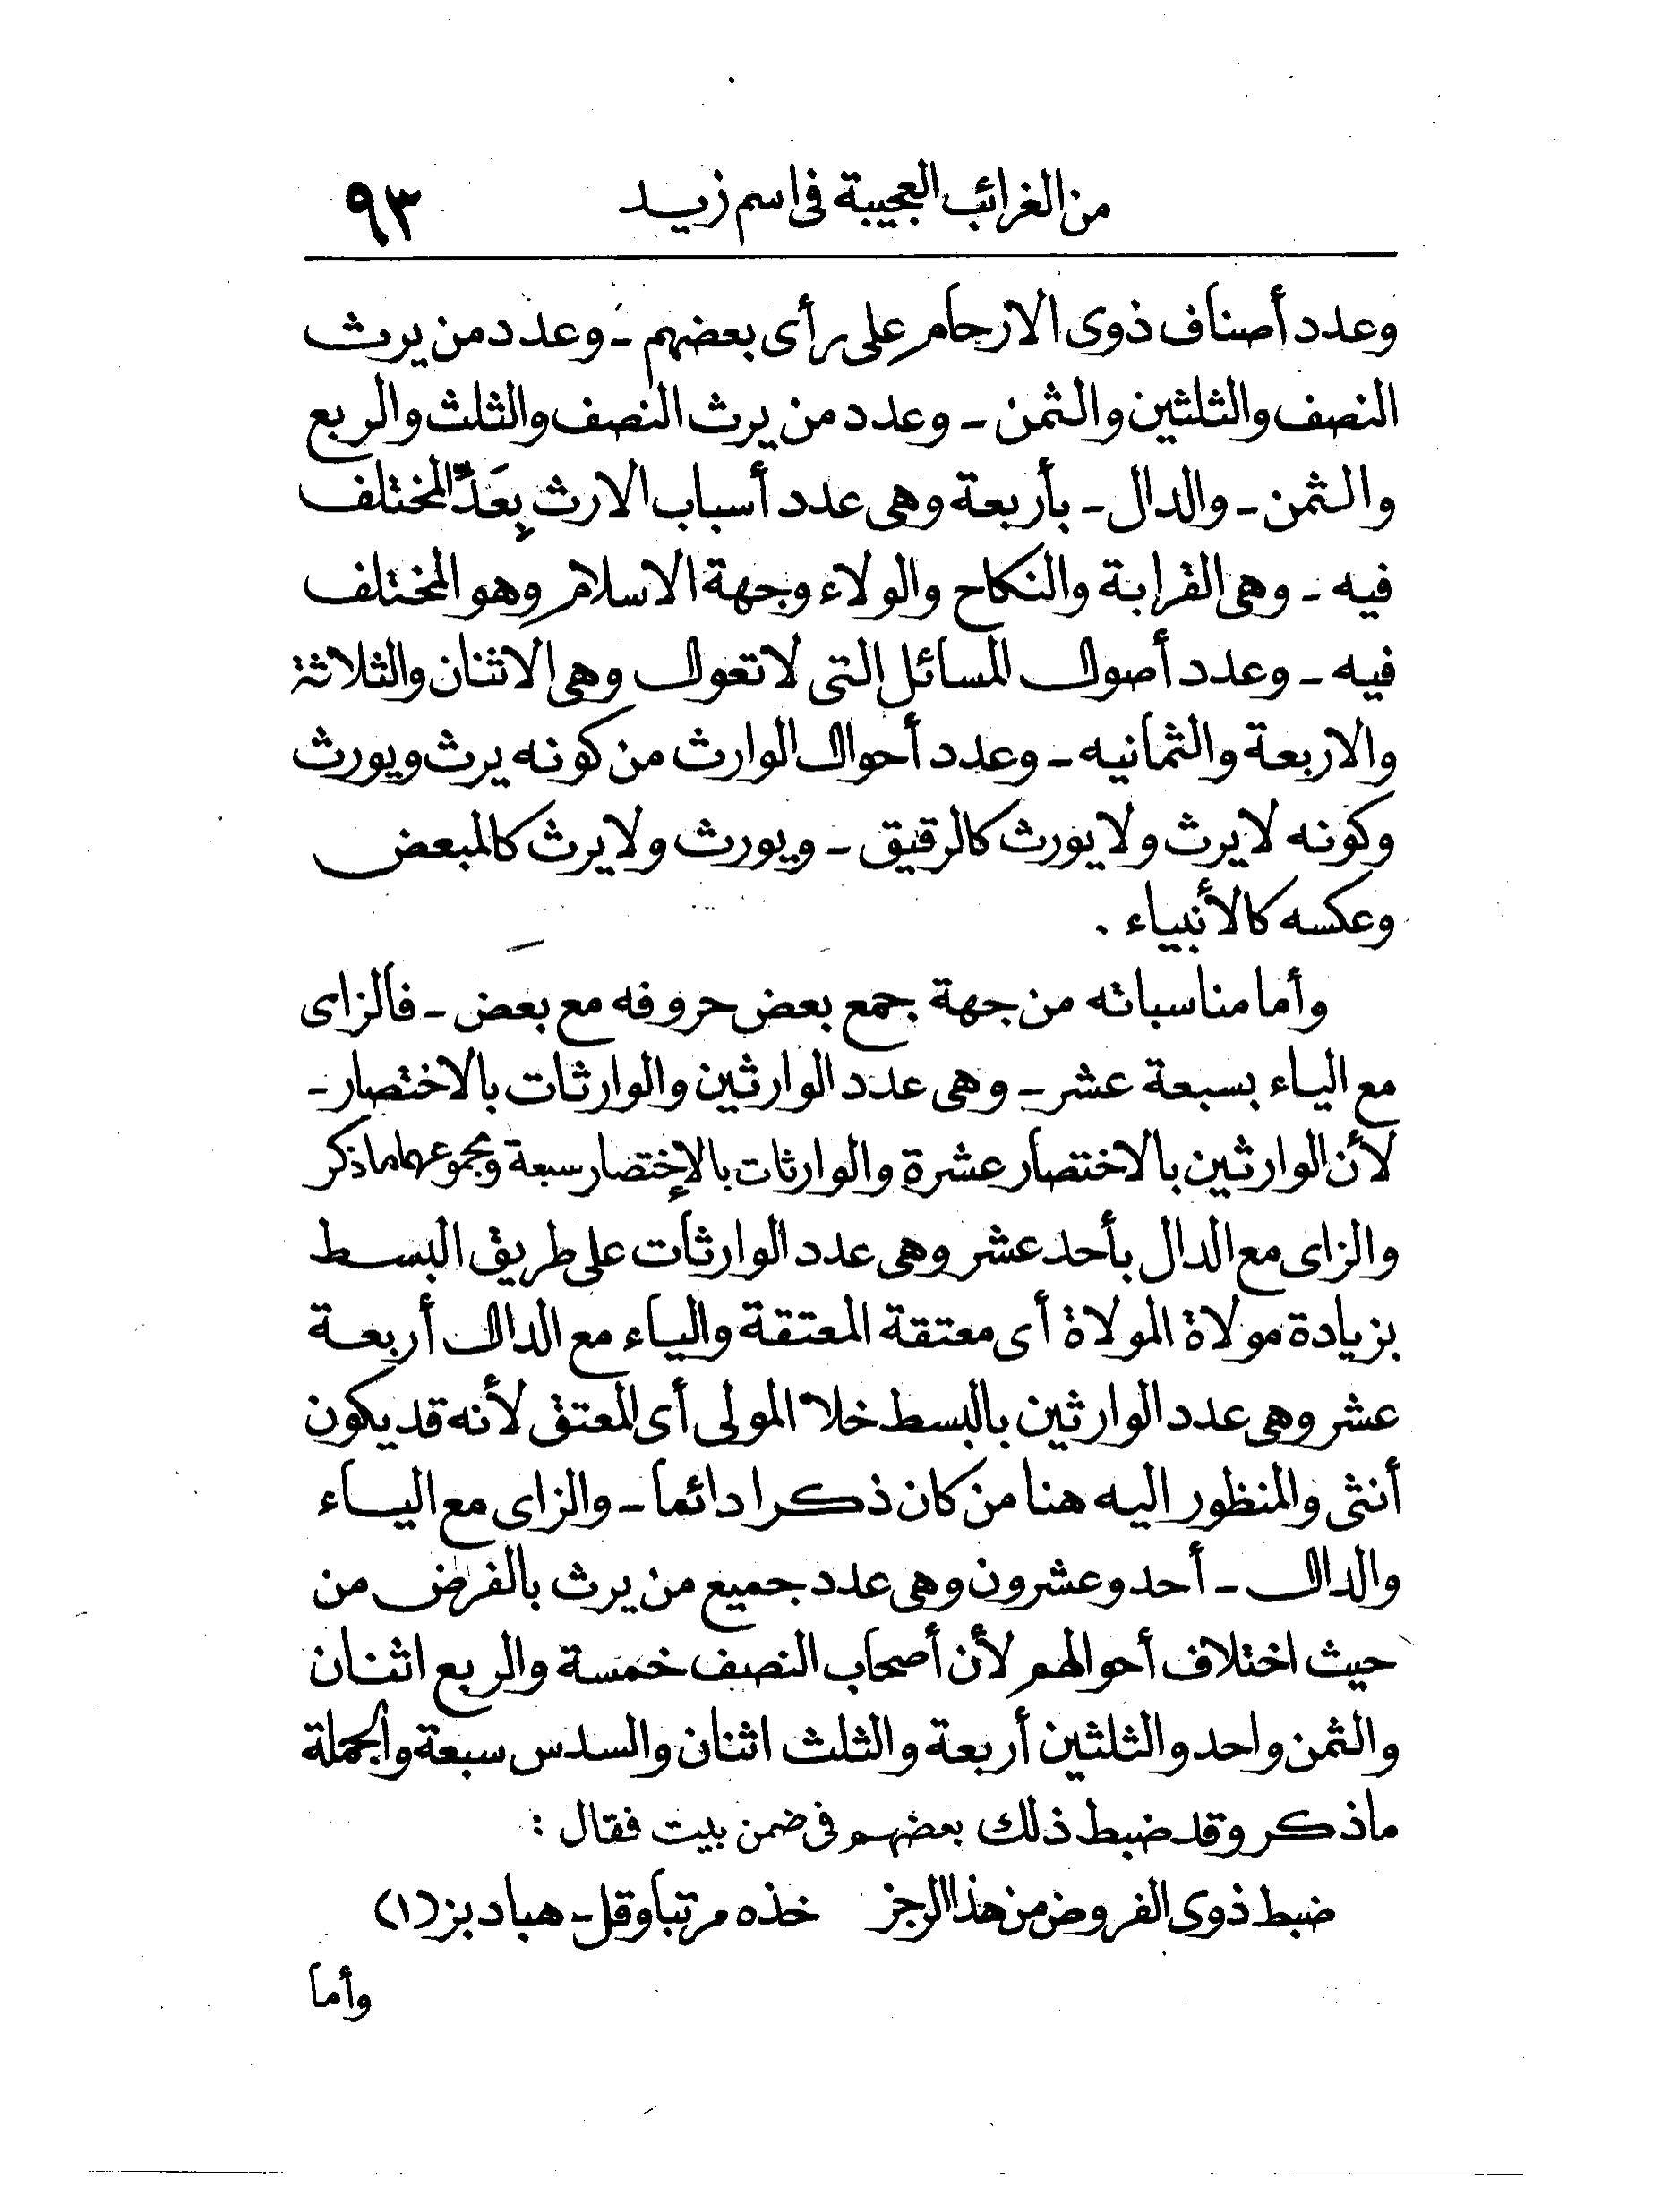 من الغرائب العجيبة فى اسم زيد ٩٣
وعدد أصناف ذوى الارحام على رأى بعضهم ـ وعدد من يرث
النصف والثلثين والثمن ـ وعدد من يرث النصف والثلث والربع
والثمن ـ والدال ـ بأربعة وهى عدد أسباب الارث بِعَدِّ المختلف
فيه ـ وهى القرابة والنكاح والولاء وجهة الاسلام وهو المختلف
فيه ـ وعدد أصول المسائل التى لا تعول وهى الاثنان والثلاثة
والاربعة والثمانيه ـ وعدد أحوال الوارث من كونه يرث ويورث
وكونه لا يرث ولا يورث كالرقيق ـ ويورث ولا يرث كالمبعض
وعكسه كالأنبياء .
وأما مناسباته من جهة جمع بعض حروفه مع بعض ـ فالزاى
مع الياء بسبعة عشر ـ وهى عدد الوارثين والوارثات بالاختصار ـ
لأن الوارثين بالاختصار عشرة والوارثات بالإختصار سبعة ومجموعهما ما ذكر
والزاى مع الدال بأحد عشر وهى عدد الوارثات على طريق البسط
بزيادة مولاة المولاة أى معتقة المعتقة والياء مع الدال أربعة
عشر وهى عدد الوارثين بالبسط خلا المولى أى المعتق لأنه قد يكون
أنثى والمنظور اليه هنا من كان ذكرا دائما ـ والزاى مع الياء
والدال ـ أحد وعشرون وهى عدد جميع من يرث بالفرض من
حيث اختلاف أحوالهم لأن أصحاب النصف خمسة والربع اثنان
والثمن واحد والثلثين أربعة والثلث اثنان والسدس سبعة والجملة
ما ذكر وقد ضبط ذلك بعضهم فى ضمن بيت فقال :
ضبط ذوى الفروض من هذا الرجز خذه مرتبا وقل ـ هبادبز (١)
وأما